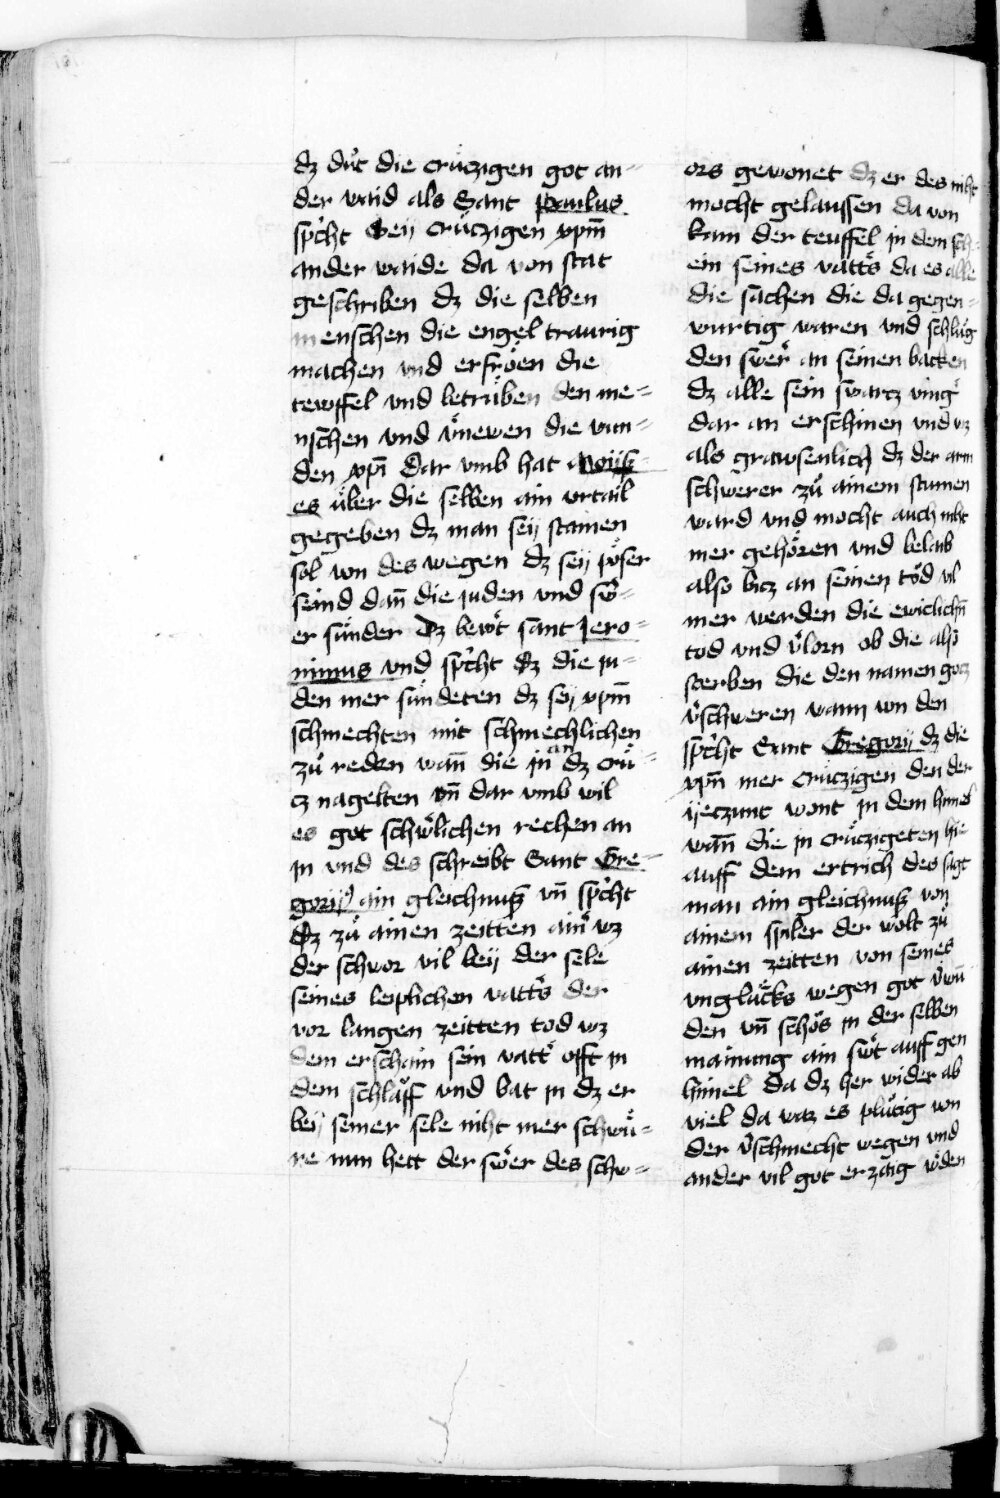 dz dut die crüczigen got an-
der waid als Sant Paulus
spͥcht Seij crüczigen xpm̄
ander waide da von stat
geschriben dz die selben
menschen die engel traurig
machen vnd erfröen die
tewffel vnd betrüben den me-
nschen vnd v̓newen die wun-
den xpī dar vmb hat Moijs-
es über die selben ain vrtail
gegeben dz man seij stainen
sol von des wegen dz seij pöser
seind dañ die juden vnd sw̓-
er sünder Dz bew̓t sant Jero-
nimus vnd spͥcht dz die ju-
den mer sündeten dz seij xpm̄
schmechten mit schmechlichen
zů reden wañ die jn an dz crü-
cz nagelten vñ dar vmb wil
es got schwͦlichen rechen an
jn vnd des schreibt Sant Gre-
gorijꝰ ain gleichnusz vñ spͥcht
Dz zů ainen zeitten ain̓ wz
der schwor vil beij der sele
seines leiplichen vatt̓s der
vor langen zeitten tod wz
dem erschain sein vatt̓ offt jn
dem schlauff vnd bat jn dz er
beij seiner sele niht mer schwü-
re nun hett der sw̓er des schw-
ors gewonet dz er des niht
mocht gelaussen da von
kam der teuffel jn dem sch-
ein seines vatt̓s da es alle
die sachen die da gegen-
wurtig waren vnd schlug
den swer̓ an seinen backen
dz alle sein swarcz ving̓
dar an erschinen vnd wz
als grawsenlich dz der arm
schwerer zů ainem stumen
ward vnd mocht auch niht
mer gehören vnd belaib
also bicz an seinen tod vil
mer werden die ewiclichñ
tod vnd v̓lorn ob die also
sterben die den namen gotz
v̓schweren wann von den
spͥcht Sant Gregorij dz die
xpm̄ mer crüczigen den der
ijeczunt wont jn dem himel
wañ die jn crüczigeten hie
auff dem ertrich des sagt
man ain gleichnusz von
ainem spiler der wolt zů
ainen zeitten von seines
vnglücks wegen got v̓wū
den vñ schos jn der selben
mainung ain sw̓t auff gen
himel da dz her wider ab
viel da waz es plütig von
der v̓schmecht wegen vnd
ander vil got erzaig w̓den